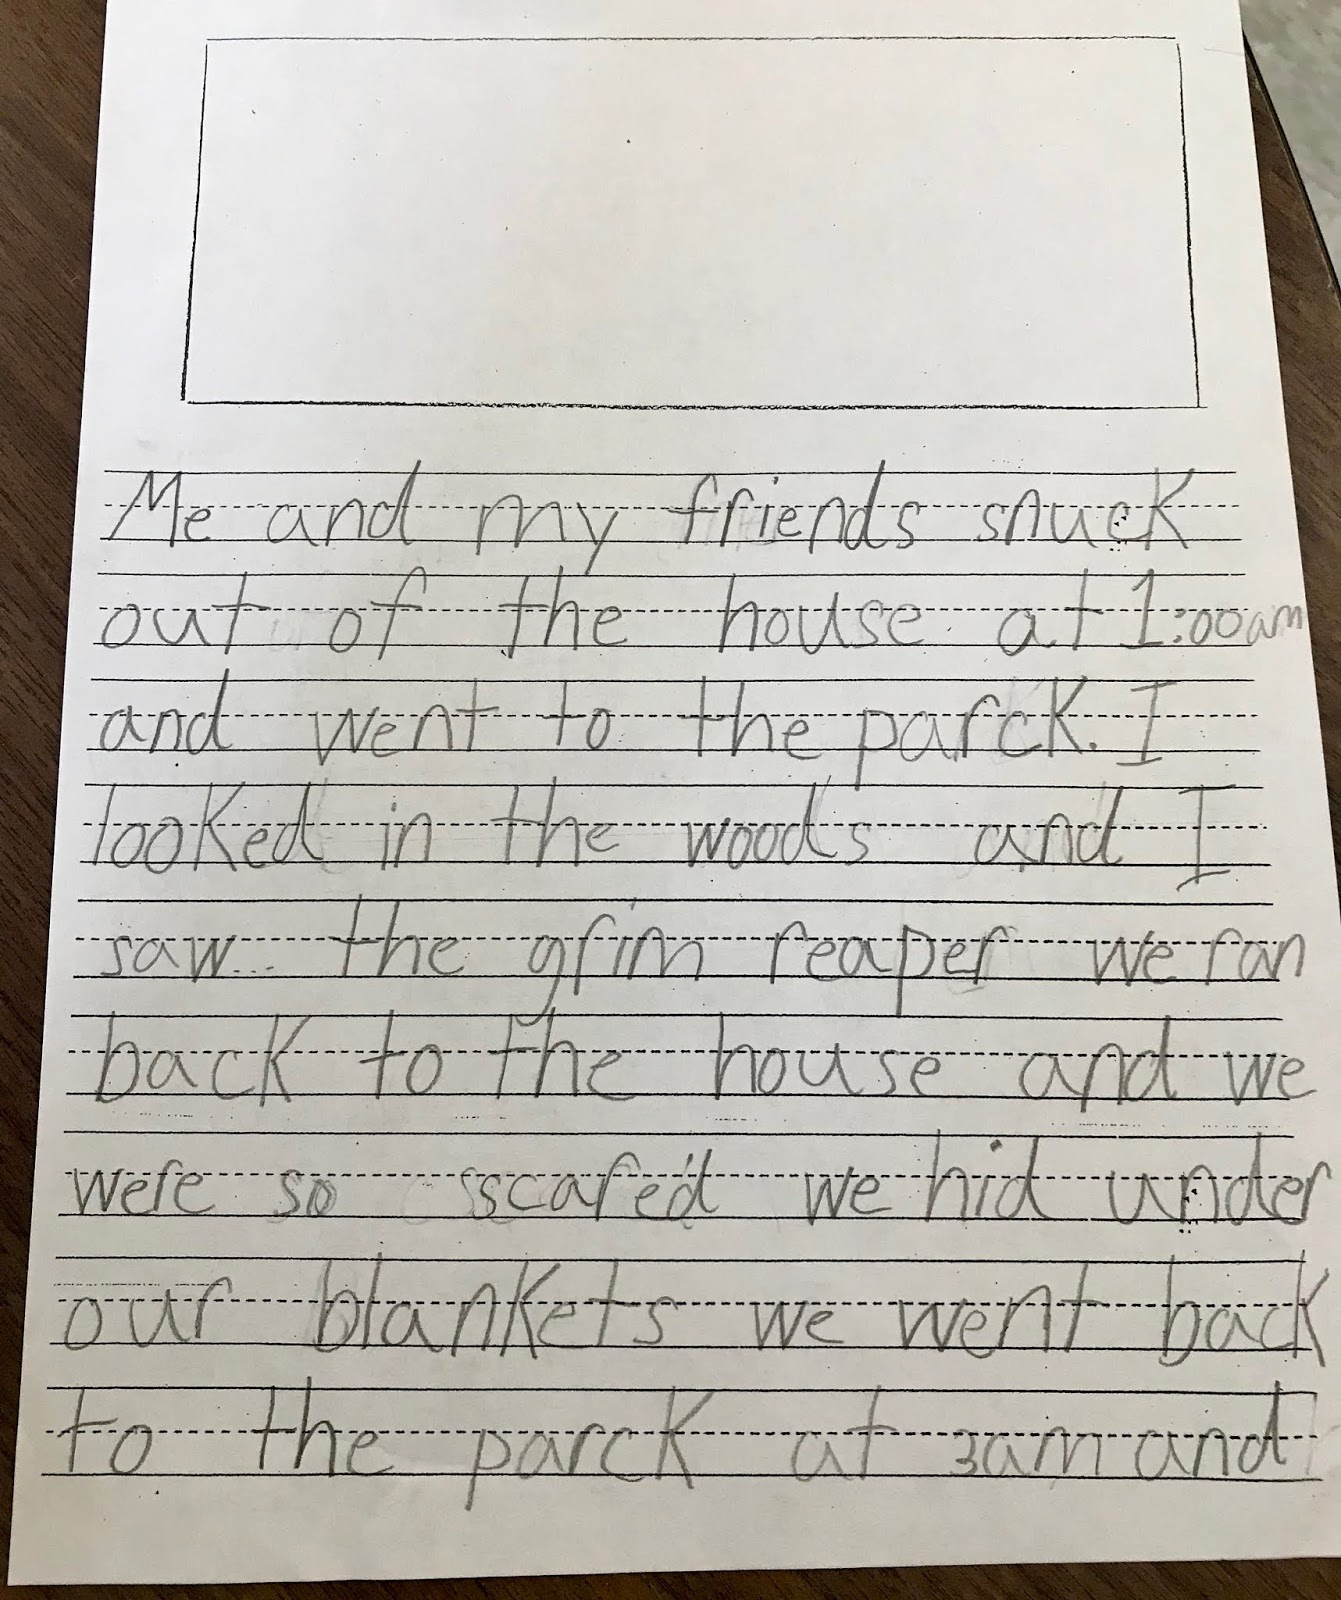 Me and my friends snuck
out of the house at 1:00am
and went to the parck. I
looked in the woods and I
saw... the grim reaper we ran
back to the house and we
were so scared we hid under
our blankets we went back
to the parck at 3am and